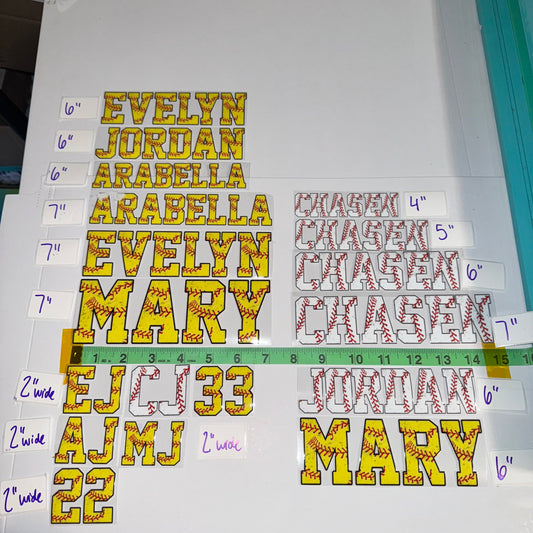 6" EVELYN
6" JORDAN
6" ARABELLA
7" ARABELLA
7" EVELYN
7" MARY
CHASEN 4"
CHASEN 5"
CHASEN 6"
CHASEN 7"
1 2 3 4 5 6 7 8 9 10 11 12 13 14 15 16
2" wide EJ CJ 33
JORDAN 6"
2" wide AJ MJ 2" wide
MARY 6"
2" wide 22